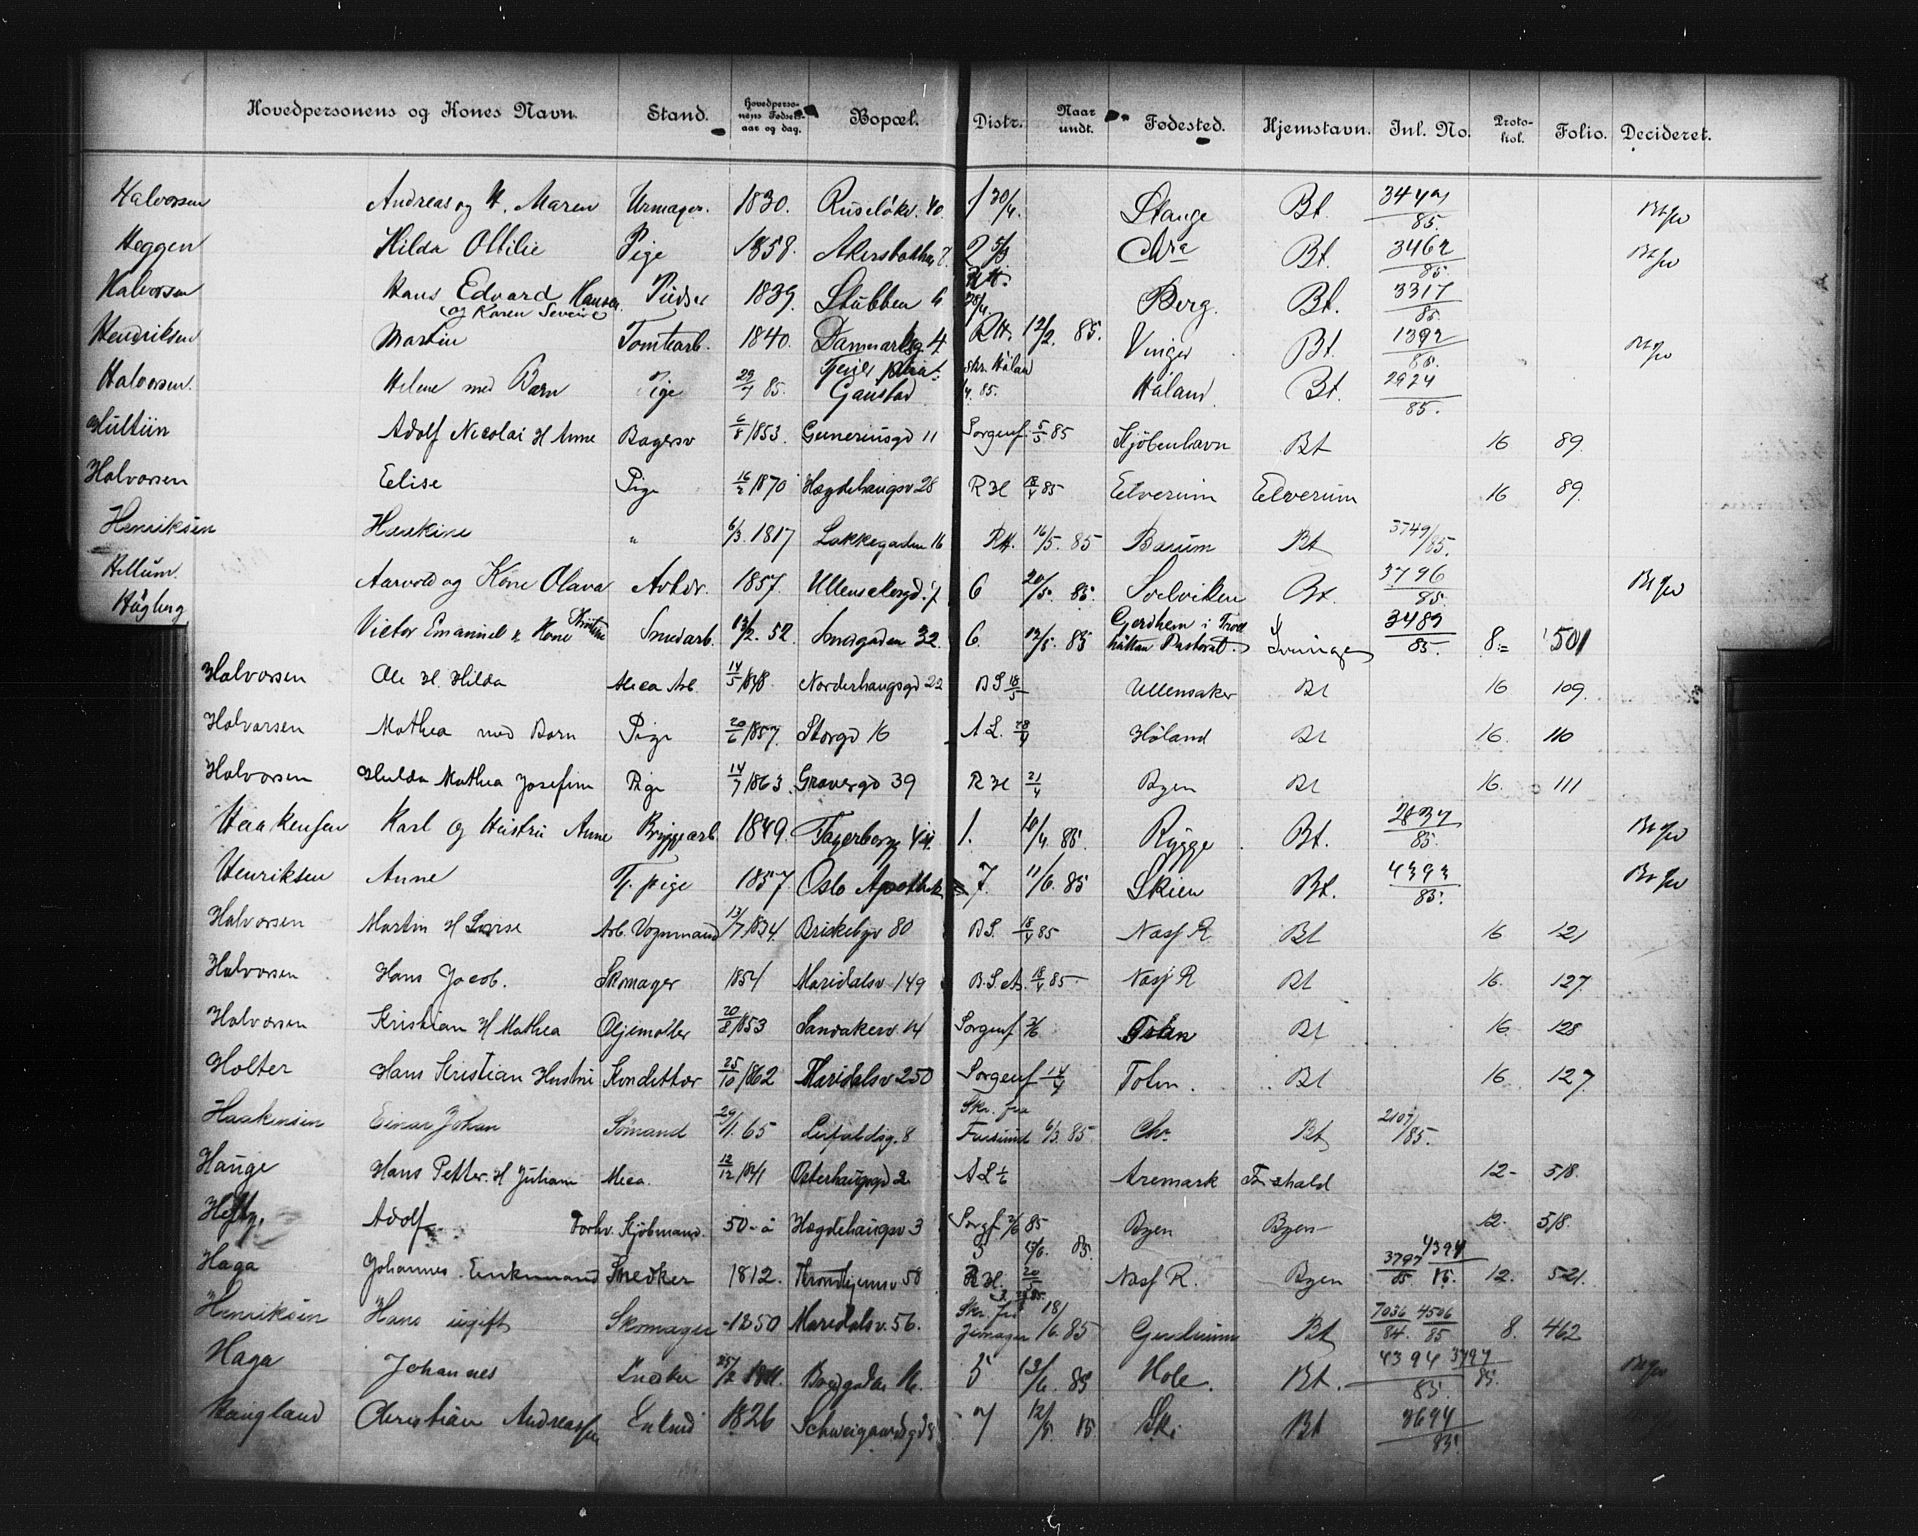 Hovedpersonens og Kones Navn. Stand. Hovedpersonens Fødselsaar og dag. Bopæl. Distr. Naar undt. Fødested. Hjemstavn. Inl. No. Protokol. Folio. Decideret.
Halvorsen Andreas og H. Maren Urmager. 1830. Ruseløkv. 40. 1 30/4. Stange Bt. 85.
Heggen Hilda Ottilie Pige 1858. 2 5/3 Bt. 3462/85.
Halvorsen Hans Edvard Hansen og Karen Severine 1839. Stubben 6 Berg. Bt. 3317/85.
Hendriksen Martin Tomtearb. 1840. Danmarksg 4. RH. 12/2. 85. Vinger Bt. 1392/85.
Halvorsen. Helene med Barn Pige 29/7 85. Gaustad Skr. Høland 85. Høland Bt. 2924/85.
Hultiin Adolf Nicolai H Anne Bagersv 6/8 1853. Guneriusgd 11 Sorgenf. 5/5 85 Kjøbenhavn Bt 16 89.
Halvorsen Elise Pige 16/2 1870 Hægdehaugsv 28 R H 85 Elverum Elverum 16 89.
Henriksen Haakine " 6/3. 1817 Lakkegaden 16 RH. 16/5. 85 Bærum Bt 3749/85.
Hellum. Aarvold og Kone Olava Arbdr. 1857. Ullensakergd. 7 6 20/5. 85. Svelviken Bt. 3796/85.
Högberg Victor Emanuel & Kone Kristine Smedarb. 13/2. 52. Smedgaden 32. 6. 12/5. 85 Gerdhem i Trollhättan Pastorat. Sverige 3483/85. 8 501
Halvorsen Ole H. Hilda Mura Arb. 14/5 1848. Norderhaugsgd 22 B S 18/5 Ullensaker Bt 16 109.
Halvorsen Mathea med Barn Pige 20/6 1857. Storgd 16 A L. 28/4 Høland Bt 16. 110
Halvorsen Hulda Mathea Josefine Pige 14/7 1863. Gravergd 39 R H 21/4 Byen Bt 16. 111
Haakensen Karl og Hustru Anne Bryggearb. 1849. Fagerborgg 44. 1. 10/4. 85. Rygge Bt. 2837/85.
Henriksen Anne Tj. pige 1857 Oslo Apothek 7. 11/6. 85 Skien Bt. 4393/85.
Halvorsen Martin H Lovise Arb. Vognmand 13/7 1834. Briskebyv 80 B S. 18/4 85 Næs R. Bt 16 121
Halvorsen Hans Jacob. Skomager 1854 Maridalsv 149 B. S. A. 18/4 85 Næs R Bt 16. 127.
Halvorsen Kristian H Mathea Oljemøller 20/8 1853 Sandakerv 14 Sorgenf 2/6 Bt 16. 128
Holter Hans Kristian Hustru Kondittor 25/10 1862 Maridalsv 250 Sorgenf 14/4 Bt 16 127.
Haakensen Einar Johan Sømand 29/11. 65 8 Skr. fra Farsund 6/3. 85. Chr. Bt 2107/85.
Hauge Hans Petter. H Juliane Mura. 12/12 1841 Osterhaugsgd 2. A L 1/6 Aremark F. hald 12 518.
Heftz, Adolf Forhv. Kjøbmand. 50- å Hægdehaugsv 3 Sorgf 2/6 85 Byen Byen 12. 518.
Haga Johannes Enkemand Snedker 1812. Trondhjemsv 58 5 13/6. 85. R. H. 20/5 Næs R. Byen 3797/85 4394/85. 12. 521.
Henriksen Hans ugift Skomager 1850 Maridalsv. 56. Skr. fra 18/6. 85 Gjerdrum Bt 7036/84. 4506/85 8. 462
Haga Johannes Snedker Bredgaden 16. 5 13/6 85 Hole. Bt. 4394/85. 3797/85.
Haugland Christian Andreassen Enkmd 1826 Schweigaardsgd 7 12/5 85. Ski Bt 3694/85.